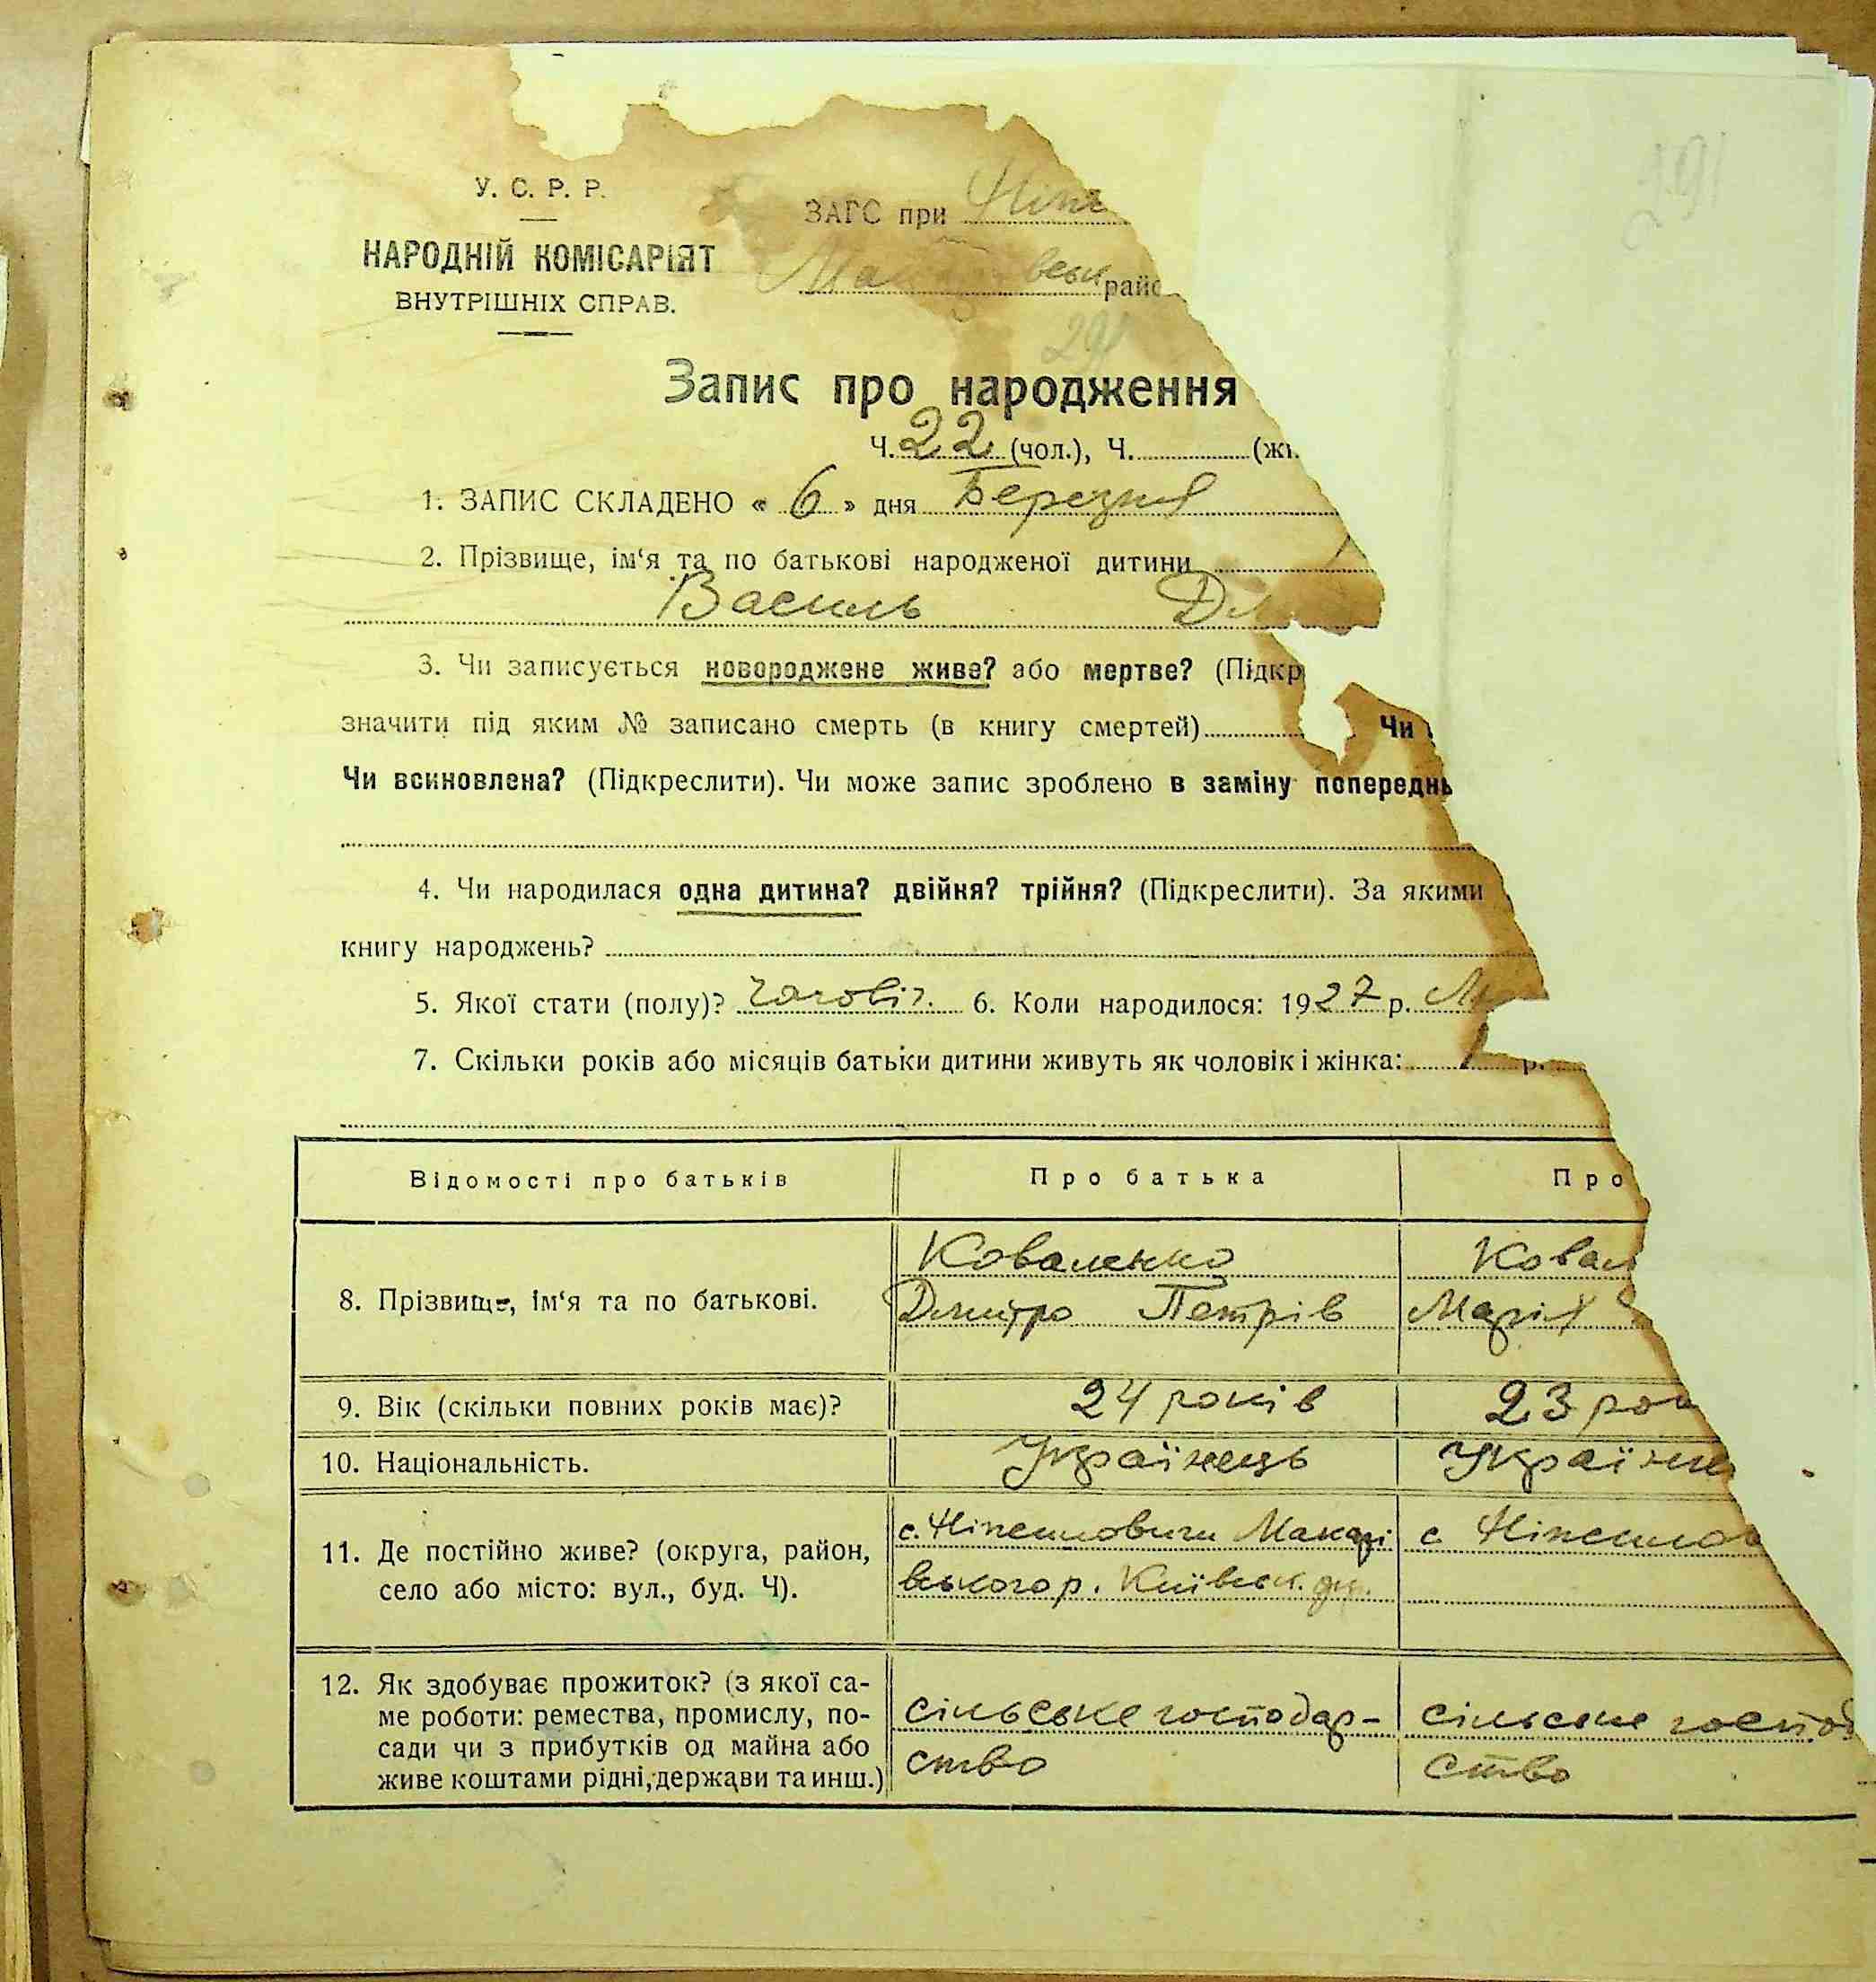 У. С. Р. Р.
НАРОДНІЙ КОМІСАРІЯТ
ВНУТРІШНІХ СПРАВ.
ЗАГС при Ніпе
Макарівськ райо
291
291
Запис про народження
Ч. 22 (чол.), Ч. (жі
1. ЗАПИС СКЛАДЕНО « 6 » дня Березня
2. Прізвище, ім‘я та по батькові народженої дитини
Василь Дм
3. Чи записується новороджене живе? або мертве? (Підкр
значити під яким № записано смерть (в книгу смертей) Чи
Чи всиновлена? (Підкреслити). Чи може запис зроблено в заміну попереднь
4. Чи народилася одна дитина? двійня? трійня? (Підкреслити). За якими
книгу народжень?
5. Якої стати (полу)? чоловіч. 6. Коли народилося: 1927 р.
7. Скільки років або місяців батьки дитини живуть як чоловік і жінка: р.
Відомості про батьків Про батька Про
8. Прізвище, ім‘я та по батькові.
Коваленко Ковал
Дмитро Петрів Марія
9. Вік (скільки повних років має)? 24 років 23 рок
10. Національність. Українець Українк
11. Де постійно живе? (округа, район,
село або місто: вул., буд. Ч).
с. Ніпешовичи Макарі с Ніпешов
вського р. Київськ. ок.
12. Як здобуває прожиток? (з якої са-
ме роботи: ремества, промислу, по-
сади чи з прибутків од майна або
живе коштами рідні, держави та инш.)
сільське господар- сільське господ
ство ство